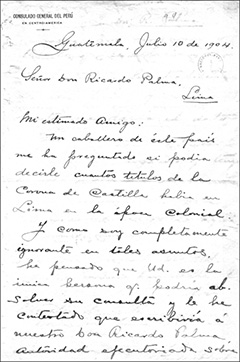 CONSULADO GENERAL DEL PERÚ
EN CENTRO AMÉRICA
Guatemala, Julio 10 de 1904.
Señor Don Ricardo Palma.
Lima
Mi estimado Amigo:
Un caballero de éste país
me ha preguntado si podía
decirle cuantos titulos de la
Corona de Castilla habia en
Lima en la época Colonial.
Y como soy completamente
ignorante en tales asuntos,
he pensado que Ud. es la
única persona q. podría ab-
solver su consulta y le he
contestado que escribiría á
nuestro Don Ricardo Palma,
Autoridad ejecutoriada sobre